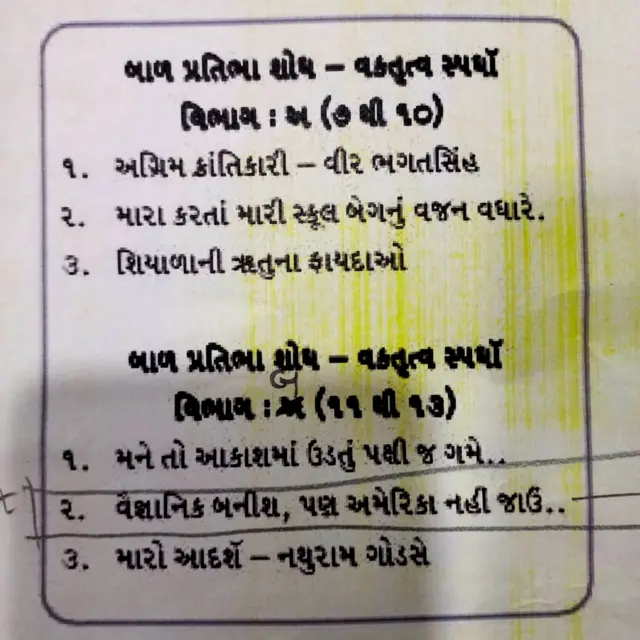 બાળ પ્રતિભા શોધ – વકતૃત્વ સ્પર્ધા
વિભાગ : અ (૭ થી ૧૦)
૧. અગ્રિમ ક્રાંતિકારી – વીર ભગતસિંહ
૨. મારા કરતાં મારી સ્કૂલ બેગનું વજન વધારે.
૩. શિયાળાની ઋતુના ફાયદાઓ
બાળ પ્રતિભા શોધ – વકતૃત્વ સ્પર્ધા
વિભાગ : બ (૧૧ થી ૧૩)
૧. મને તો આકાશમાં ઉડતું પક્ષી જ ગમે..
૨. વૈજ્ઞાનિક બનીશ, પણ અમેરિકા નહી જાઉં..
૩. મારો આદર્શ – નથુરામ ગોડસે